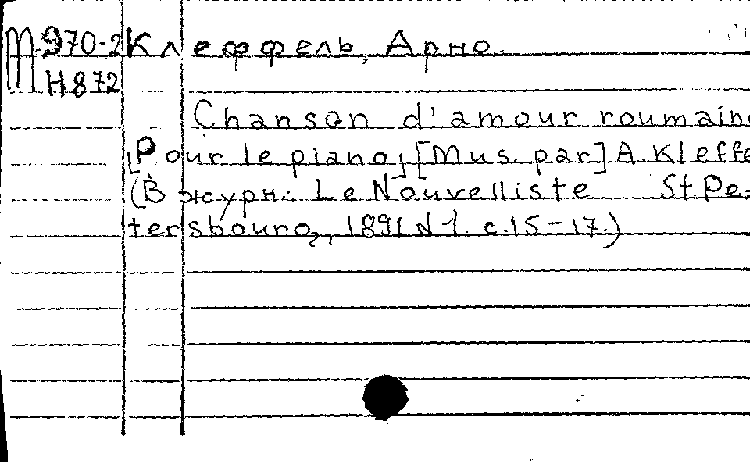 М 970-2 Клеффель, Арно.
Н872
Chanson d'amour roumain
[Pour le piano,] [Mus. par] A. Kleffe
(В журн: Le Nouvelliste St Pe-
tersbourg, 1891 N 1. с. 15-17.)